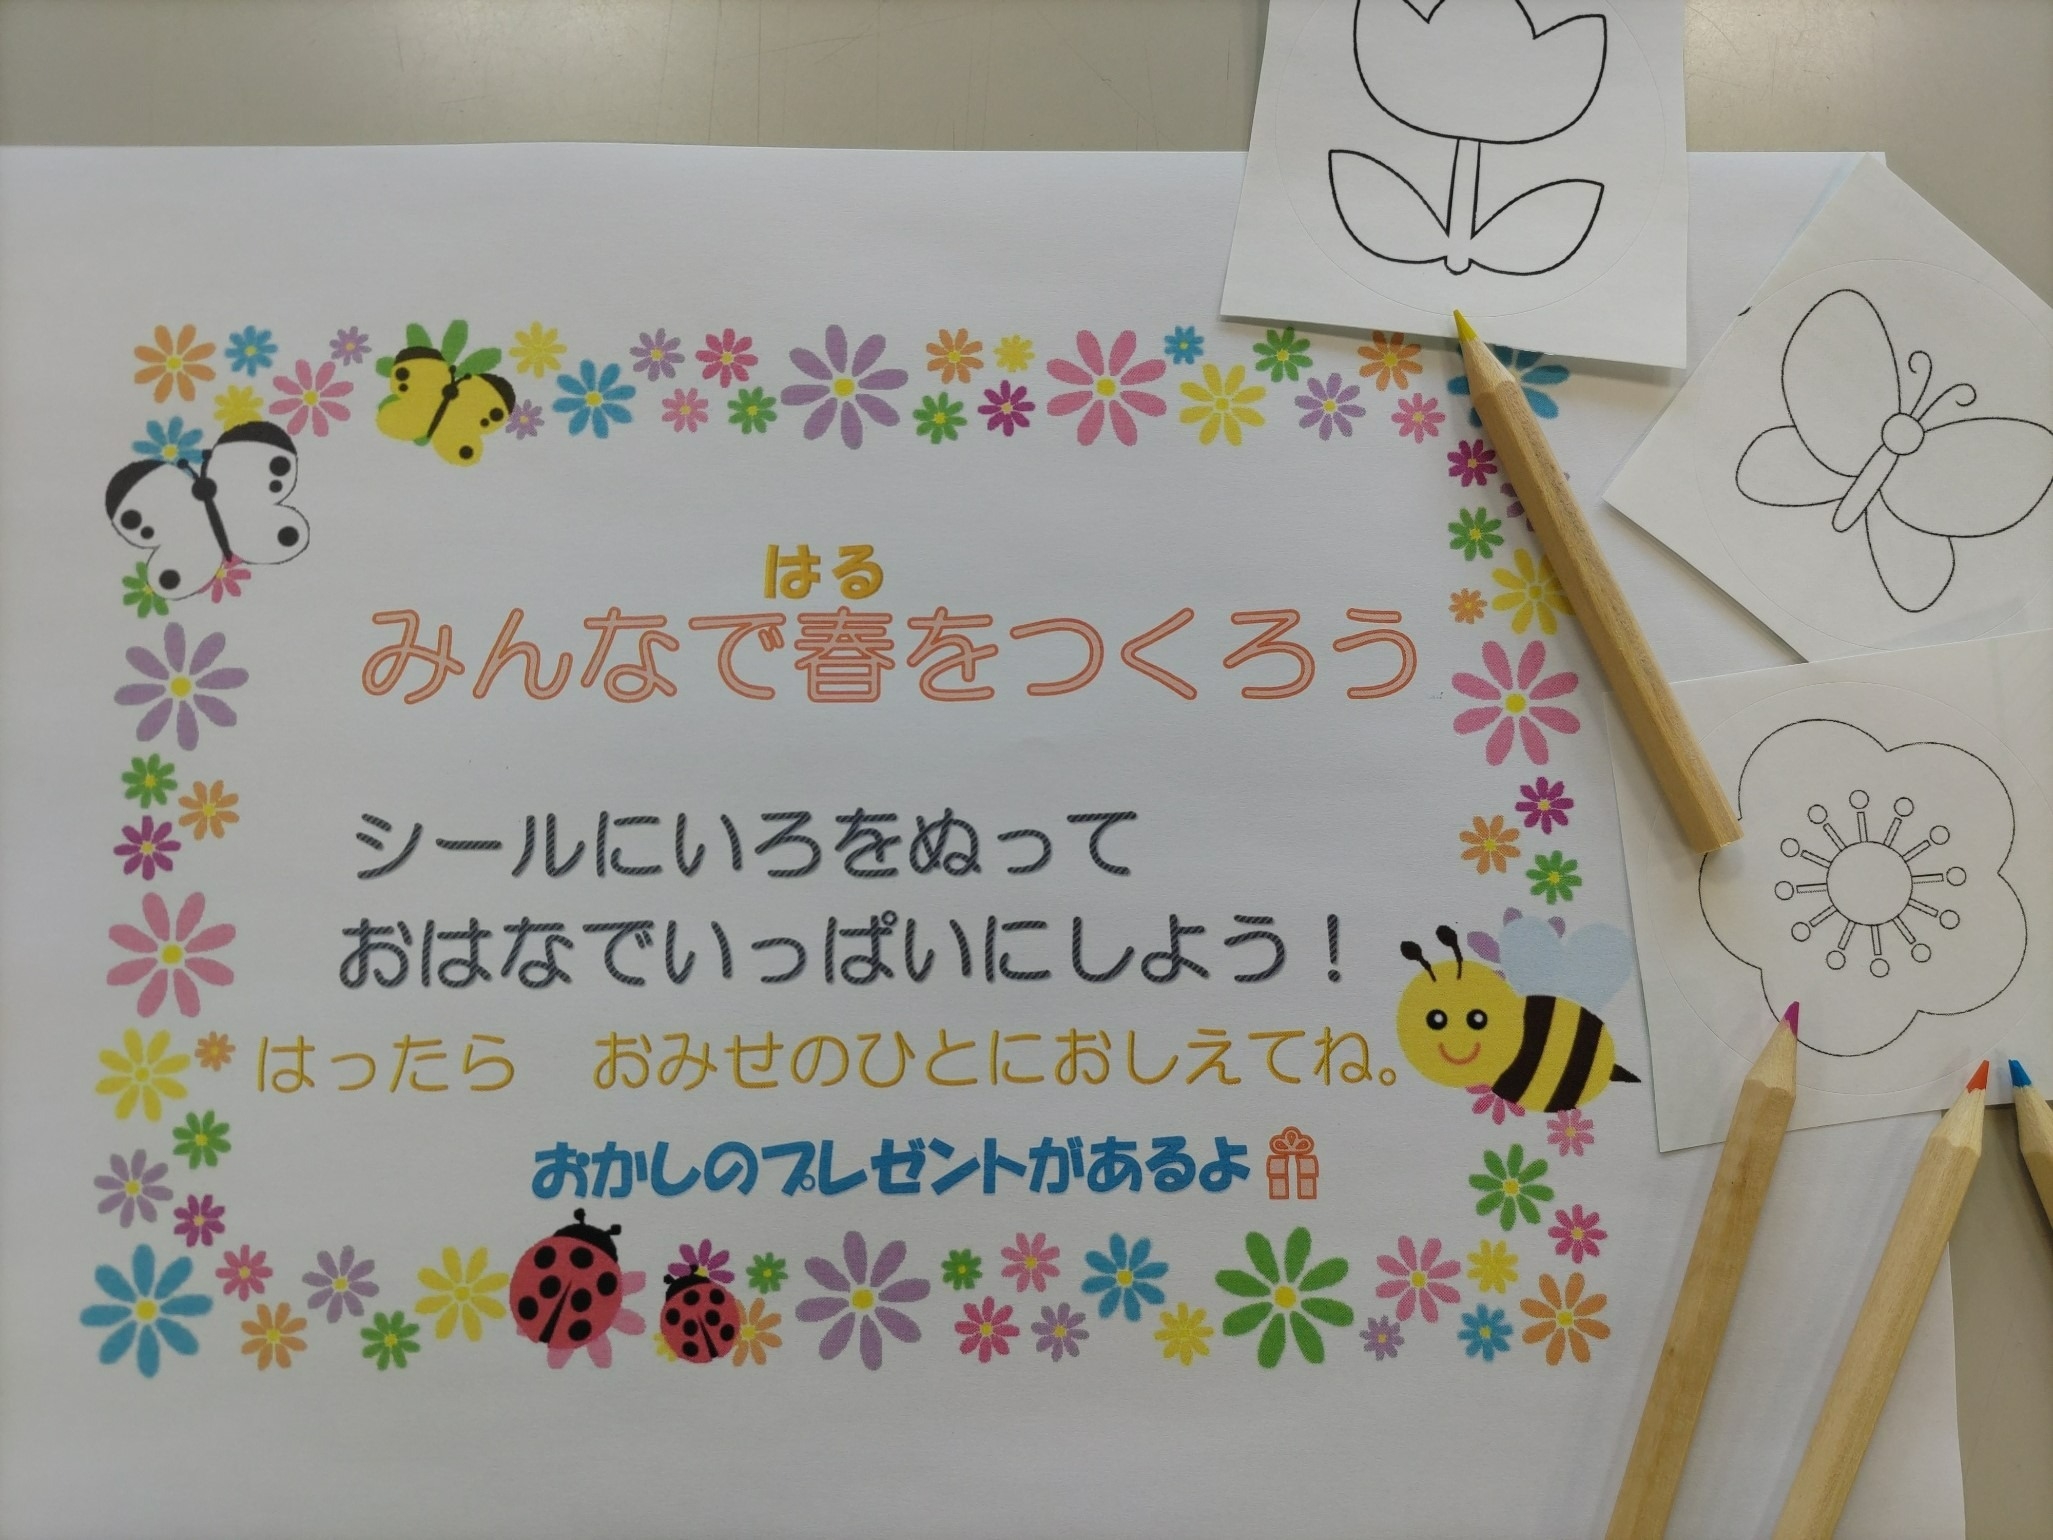 はる
みんなで春をつくろう
シールにいろをぬって
おはなでいっぱいにしよう！
はったら　おみせのひとにおしえてね。
おかしのプレゼントがあるよ